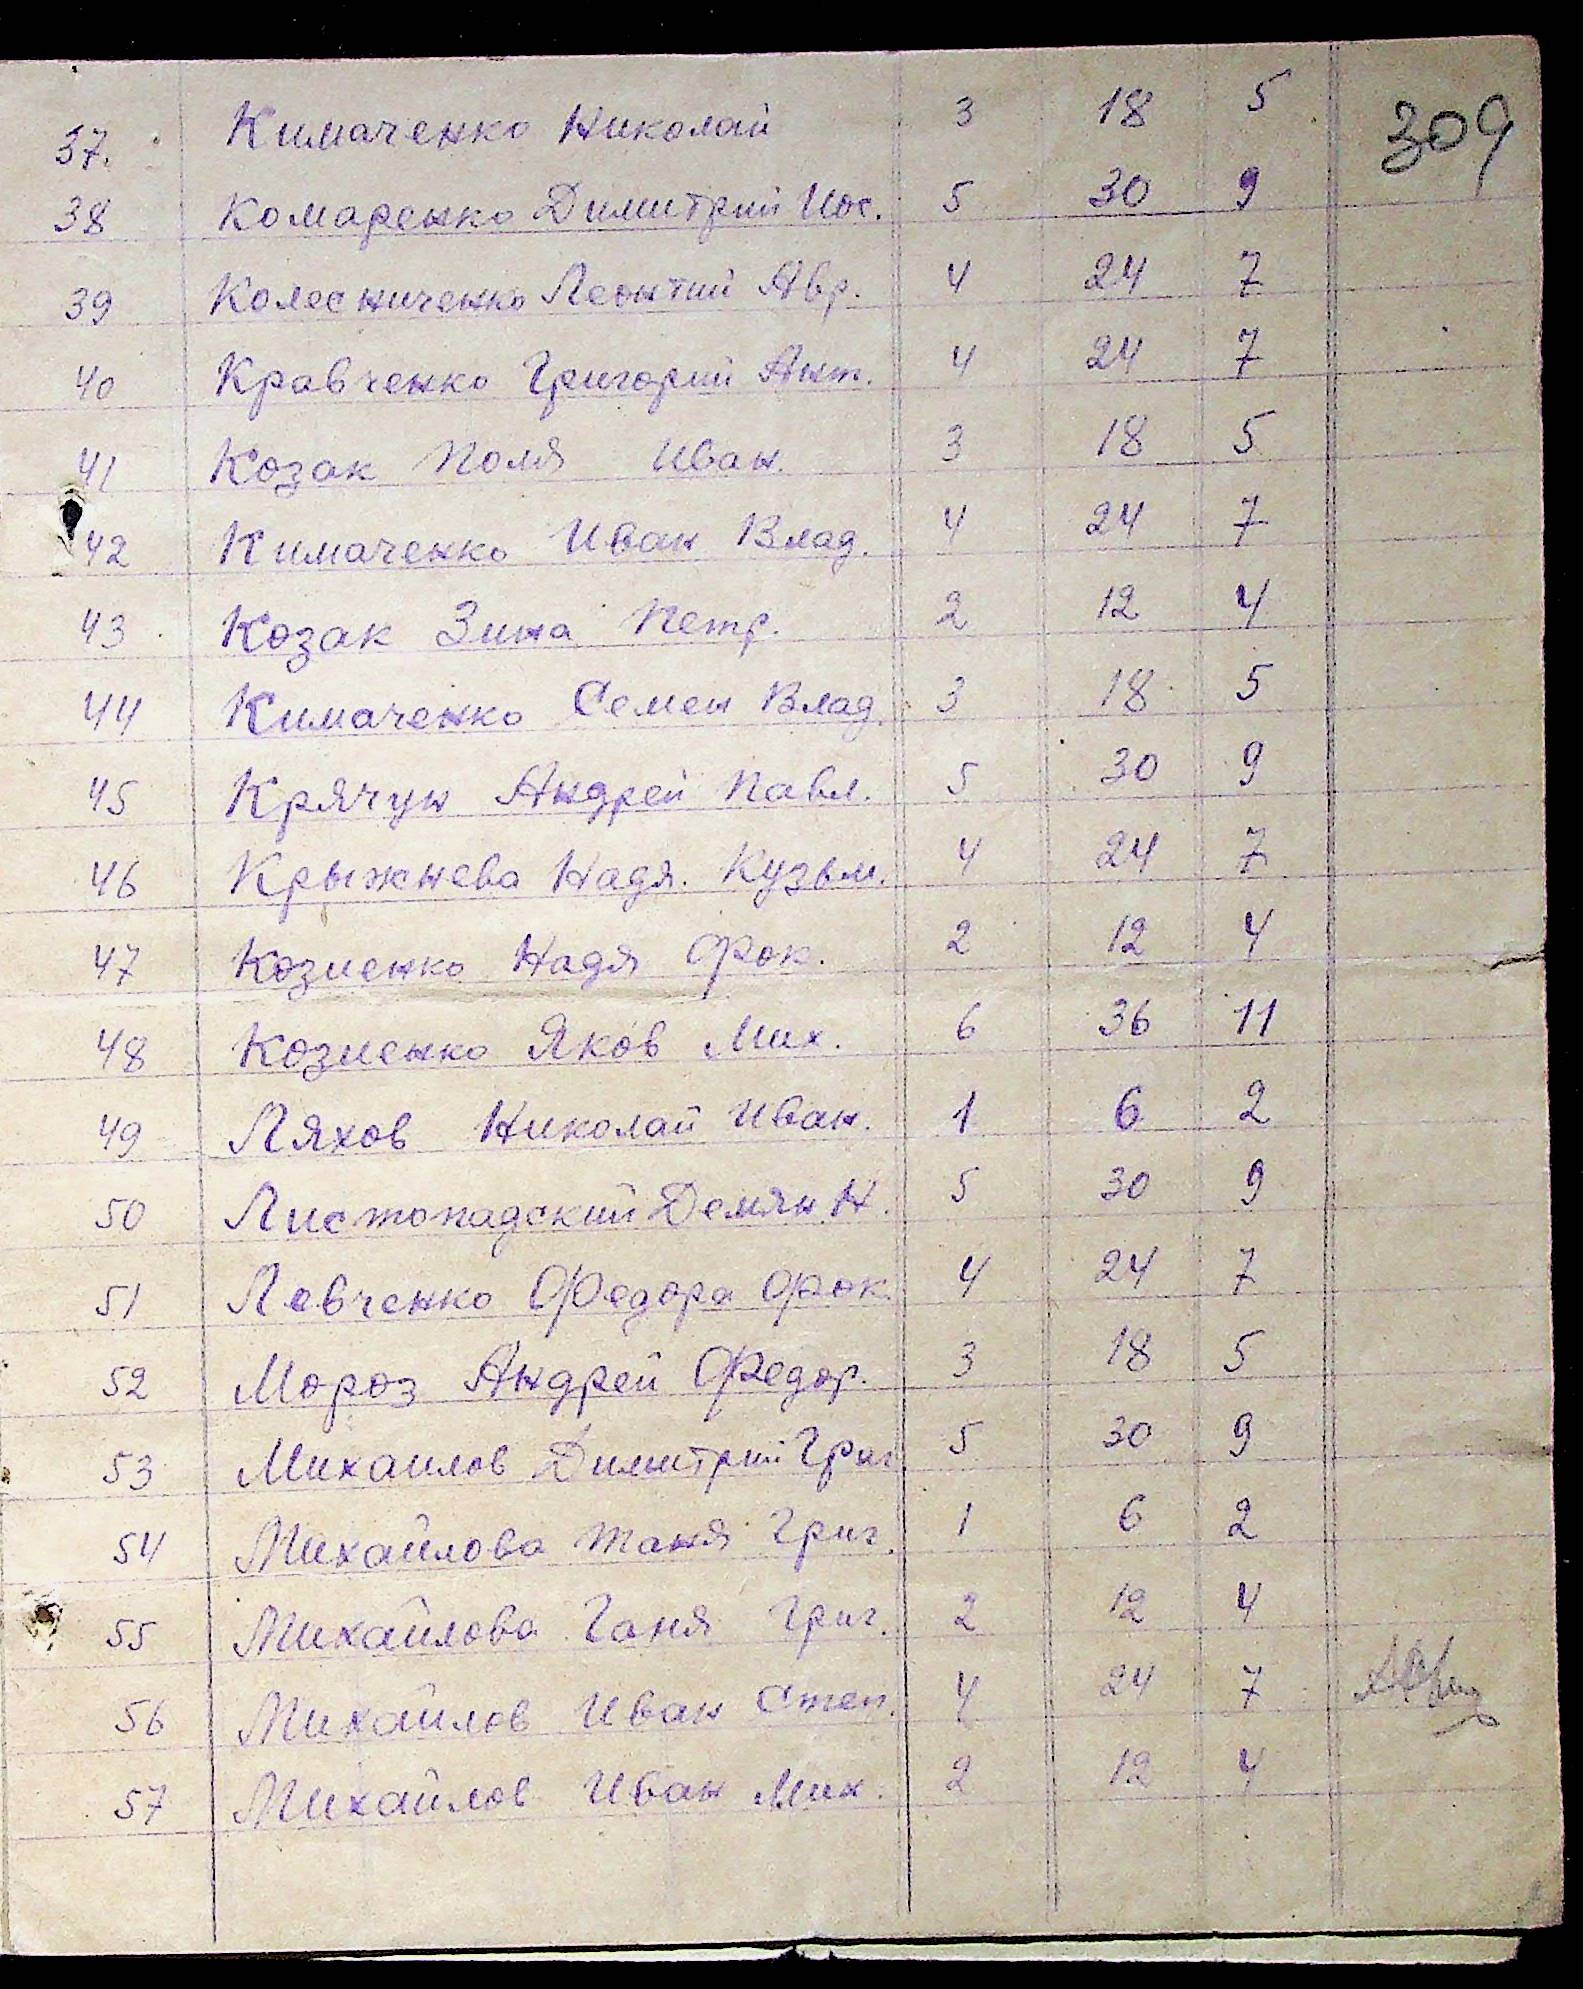 37. Кимаченко Николай 3 18 5 309
38 Комаренко Димитрий Иос. 5 30 9
39 Колесниченко Леонтий Авр. 4 24 7
40 Кравченко Григорий Ант. 4 24 7
41 Козак Поля Иван. 3 18 5
42 Кимаченко Иван Влад. 4 24 7
43 Козак Зина Петр. 2 12 4
44 Кимаченко Семен Влад. 3 18 5
45 Крячун Андрей Павл. 5 30 9
46 Крыжнева Надя. Кузьм. 4 24 7
47 Козиенко Надя Фок. 2 12 4
48 Козиенко Яков Мих. 6 36 11
49 Ляхов Николай Иван. 1 6 2
50 Листопадский Демян Н. 5 30 9
51 Левченко Федора Фок. 4 24 7
52 Мороз Андрей Федор. 3 18 5
53 Михаилов Димитрий Григ 5 30 9
54 Михайлова Таня Григ. 1 6 2
55 Михайлова Ганя Григ. 2 12 4
56 Михайлов Иван Степ. 4 24 7
57 Михайлов Иван Мих. 2 12 4